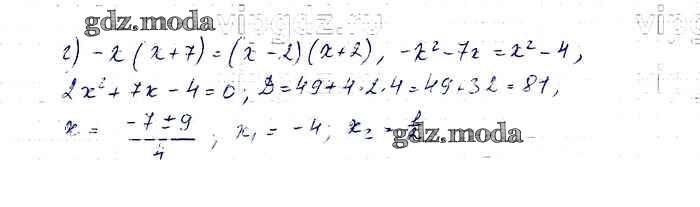 gdz.moda
vipgdz.ru
г) -x(x+7)=(x-2)(x+2), -x²-7x=x²-4,
2x²+7x-4=0; D=49+4·2·4=49+32=81,
x = (-7±9)/4; x₁ = -4; x₂ =
gdz.moda